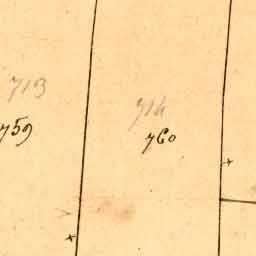 713
714
759
760